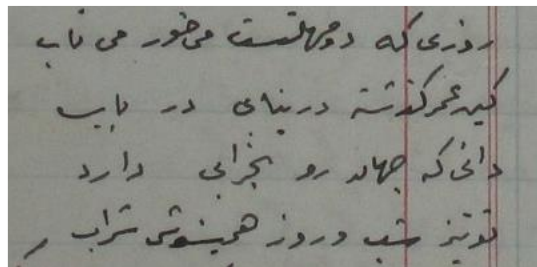 روزی که دو مهلتست می خور می ناب
کین عمر گذشته در نیابی در یاب
دانی که جهان رو بخرابی دارد
تو نیز شب و روز همی نوش شراب